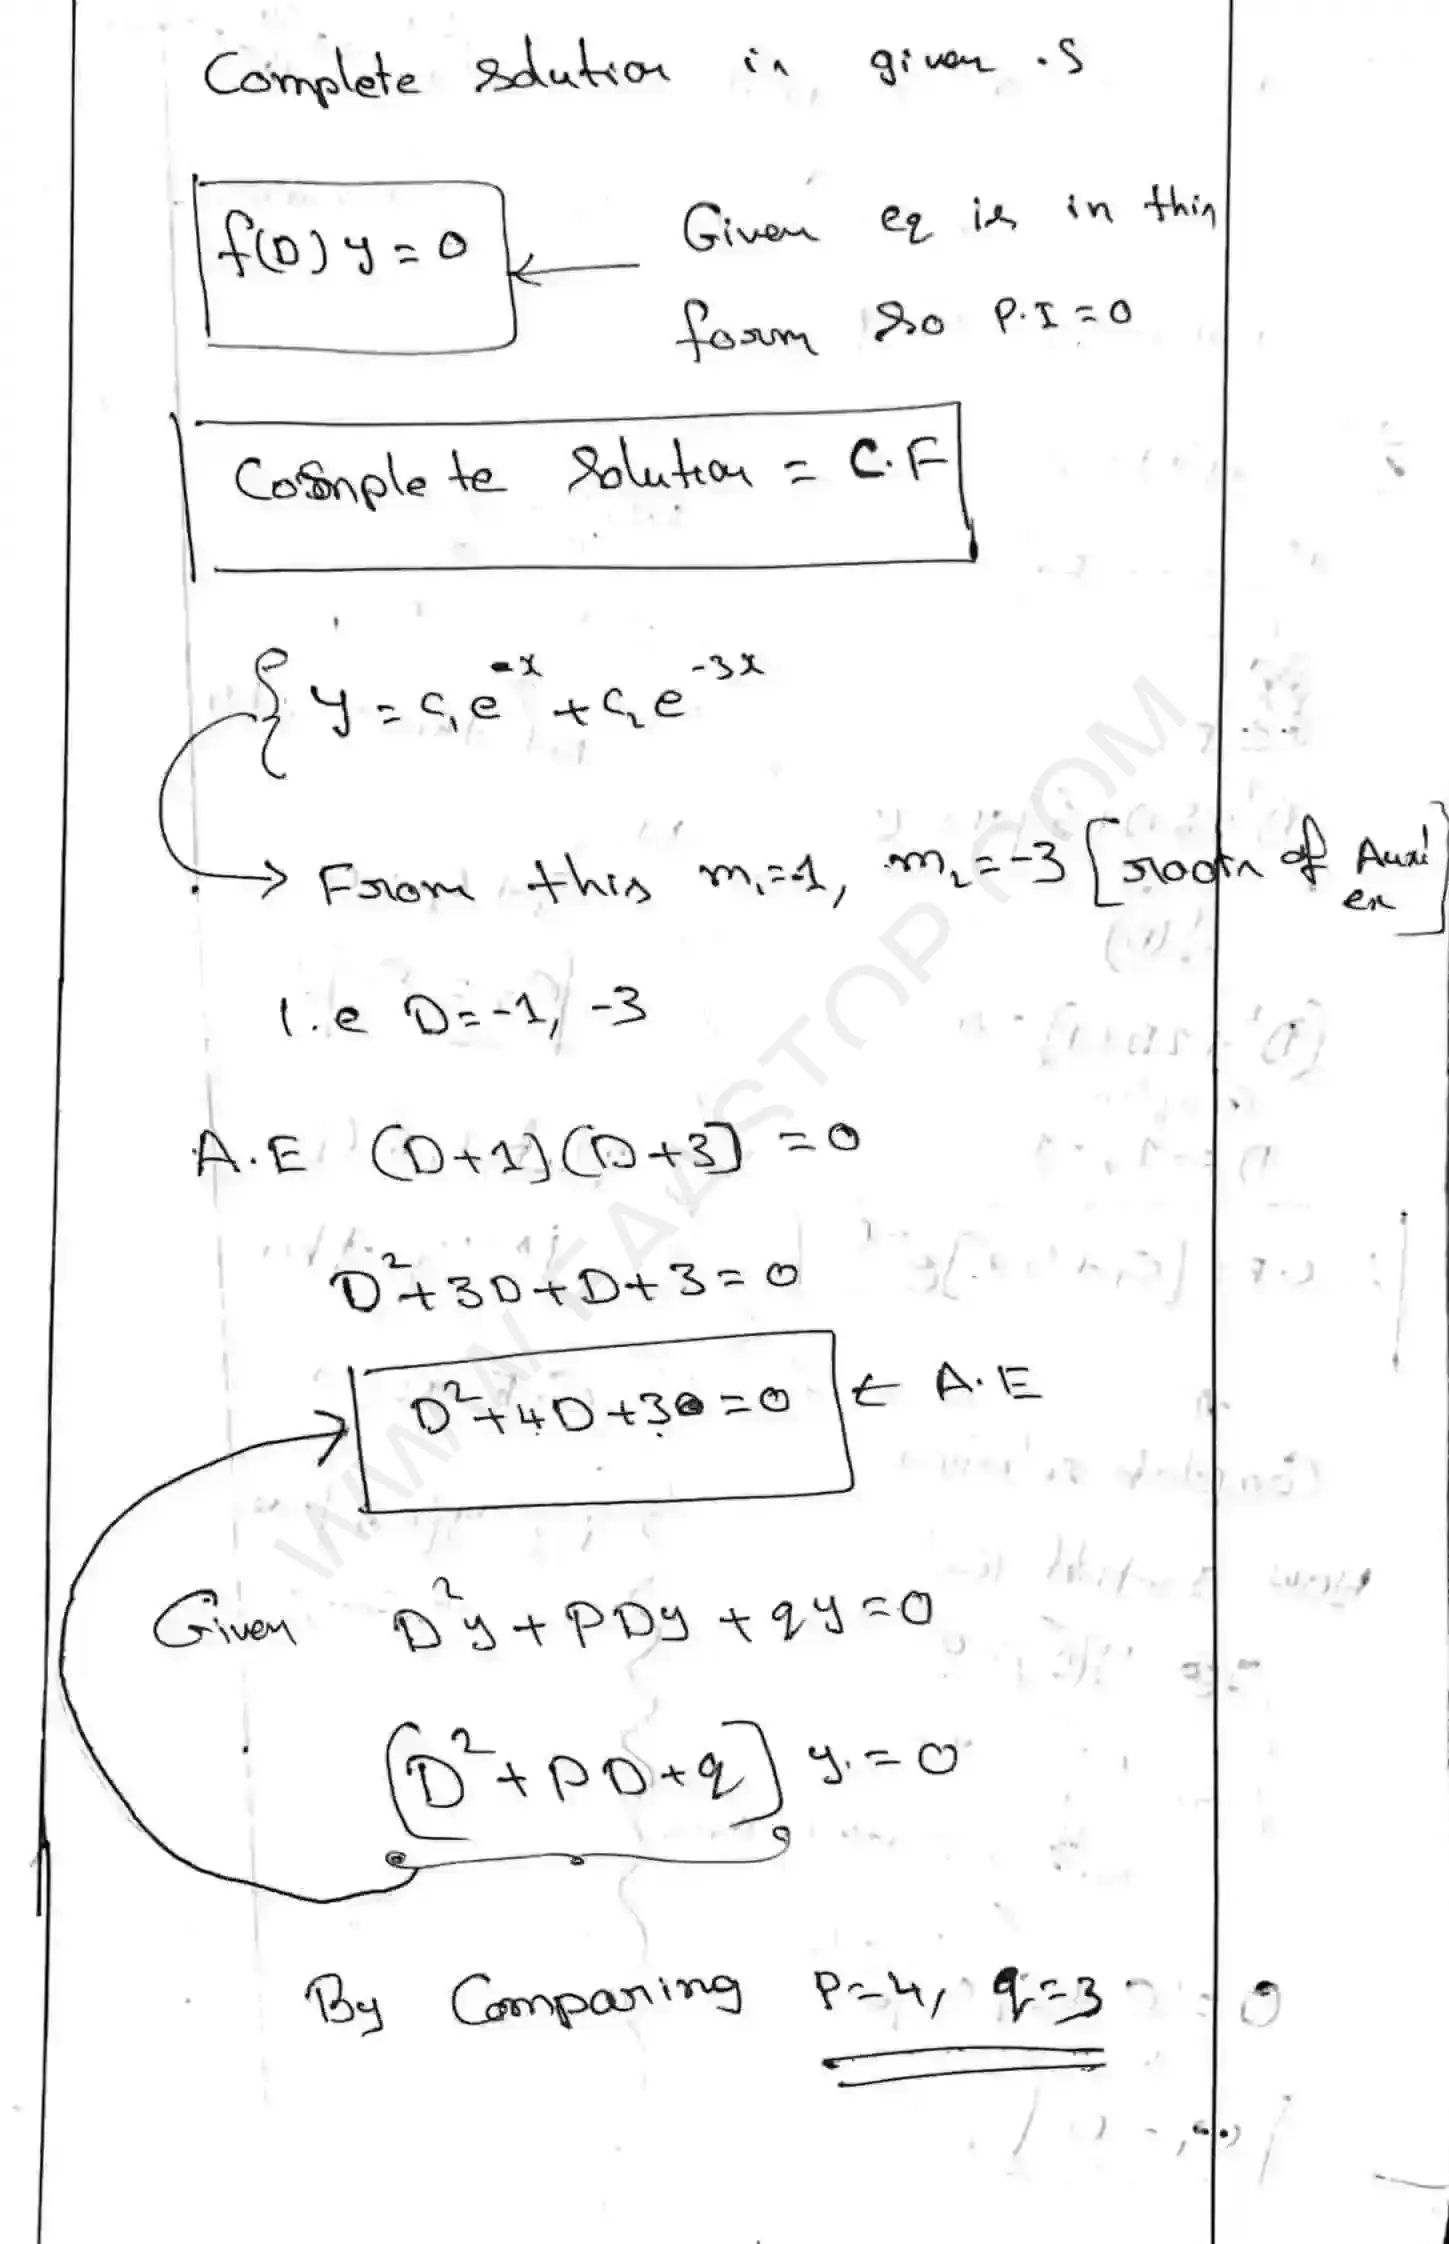 Complete solution is given .s
f(D) y = 0
Given eq is in this
form so P.I = 0
Complete solution = C.F
y = C₁e^-x + C₂e^-3x
From this m₁=-1, m₂=-3 [roots of Auxi
en]
I.e D=-1, -3
A.E (D+1)(D+3) = 0
D²+3D+D+3=0
D²+4D+3=0 ← A.E
Given D²y + PDy + qy = 0
(D²+PD+q) y = 0
By Comparing P=4, q=3
WWW.FAASTOP.COM